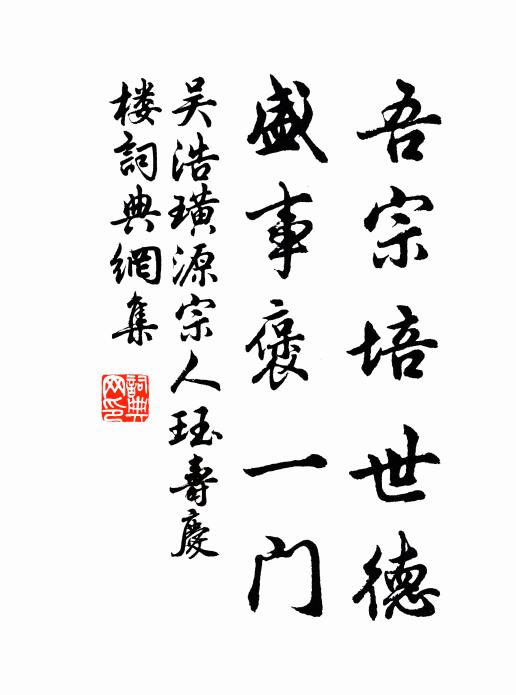 吾宗培世德
盛事褒一門
吴浩璜源宗人珏壽慶
楼詞典網集
詞典网印